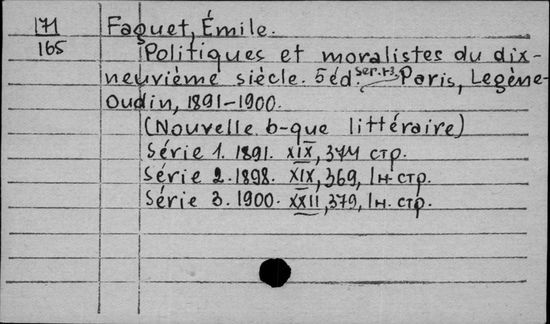 171
165
Faguet, Émile.
Politiques et moralistes du dix-
neuvième siècle. 5 éd. ser. 1-3, Paris, Legène-
Oudin, 1891-1900.
(Nouvelle b-que littéraire)
Série 1. 1891. XIX, 374 стр.
Série 2. 1898. XIX, 369, 1 н. стр.
Série 3. 1900. XXII, 379, 1 н. стр.